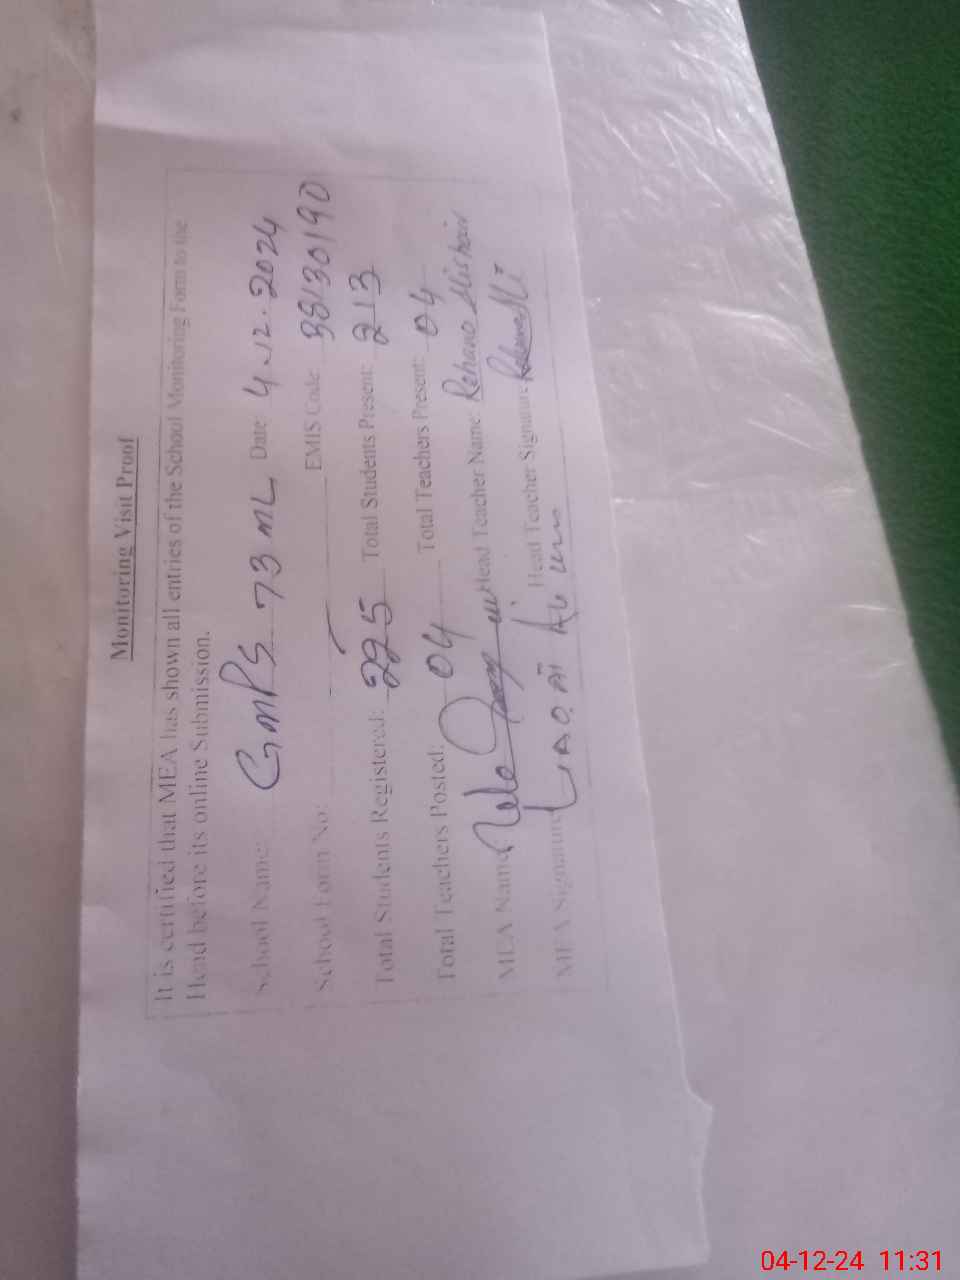 Monitoring Visit Proof
It is certified that MEA has shown all entries of the School Monitoring Form to the
Head before its online Submission.
School Name: GMPS 73 ML Date: 4.12.2024
School Form No: EMIS Code: 38130190
Total Students Registered: 225 Total Students Present: 213
Total Teachers Posted: 04 Total Teachers Present: 04
MEA Name Head Teacher Name:
MEA Signature Head Teacher Signature
04-12-24 11:31